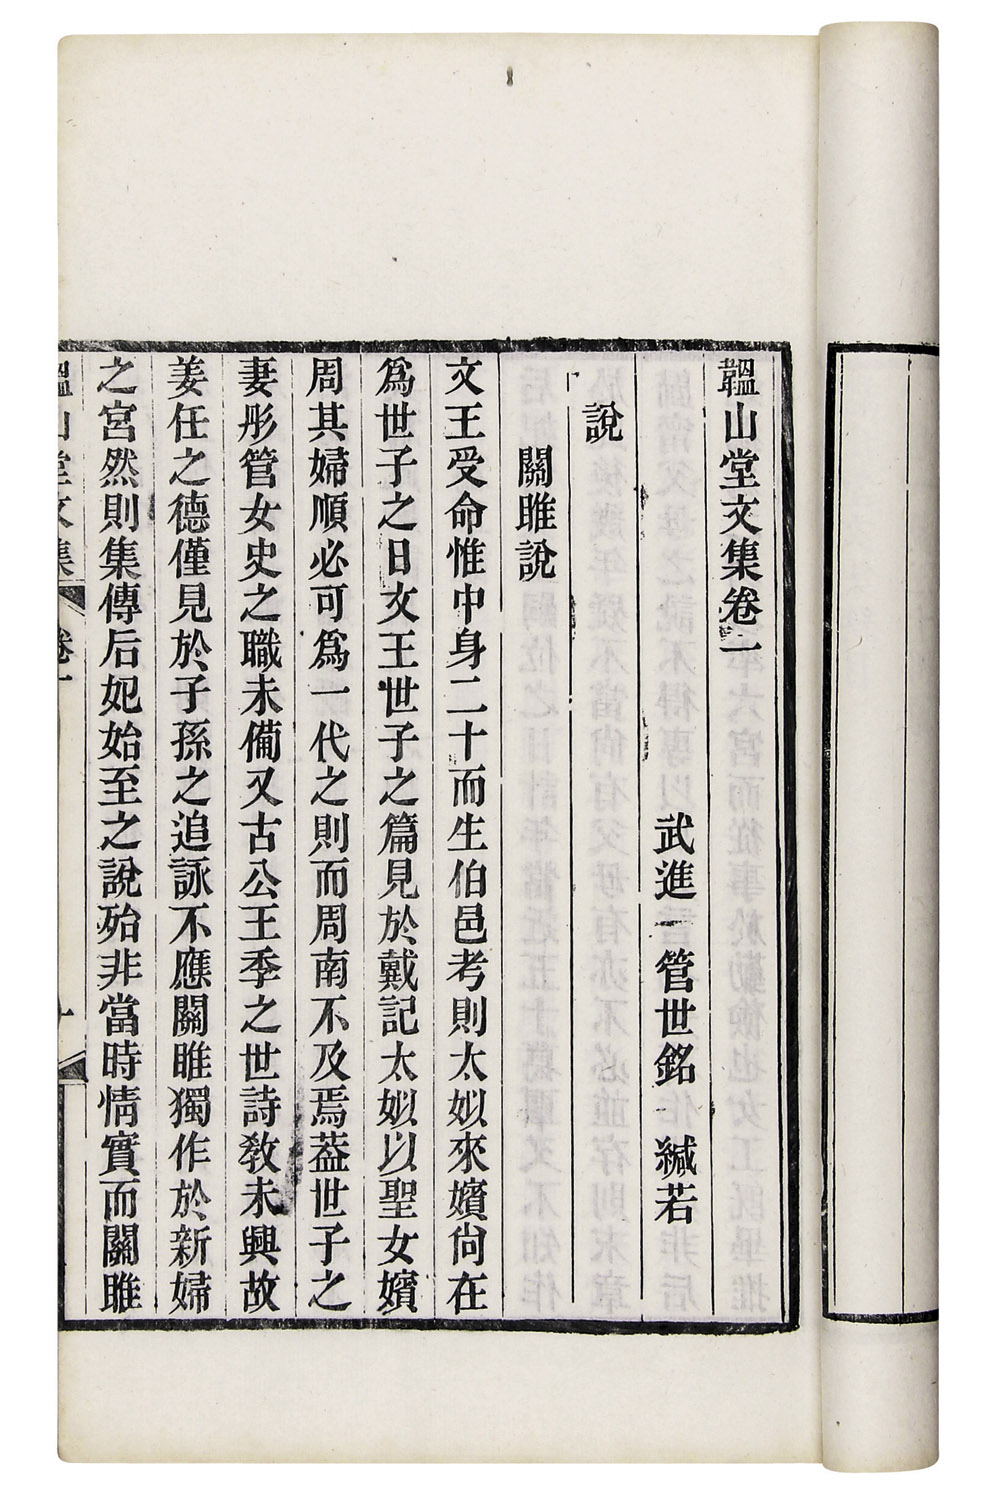 韞山堂文集卷一
武進 管世銘 緘若
說
關雎說
文王受命惟中身二十而生伯邑考則太姒來嬪尙在
爲世子之日文王世子之篇見於戴記太姒以聖女嬪
周其婦順必可爲一代之則而周南不及焉葢世子之
妻彤管女史之職未備又古公王季之世詩敎未興故
姜任之德僅見於子孫之追詠不應關雎獨作於新婦
之宮然則集傳后妃始至之說殆非當時情實而關雎
韞山堂文集 卷一 一